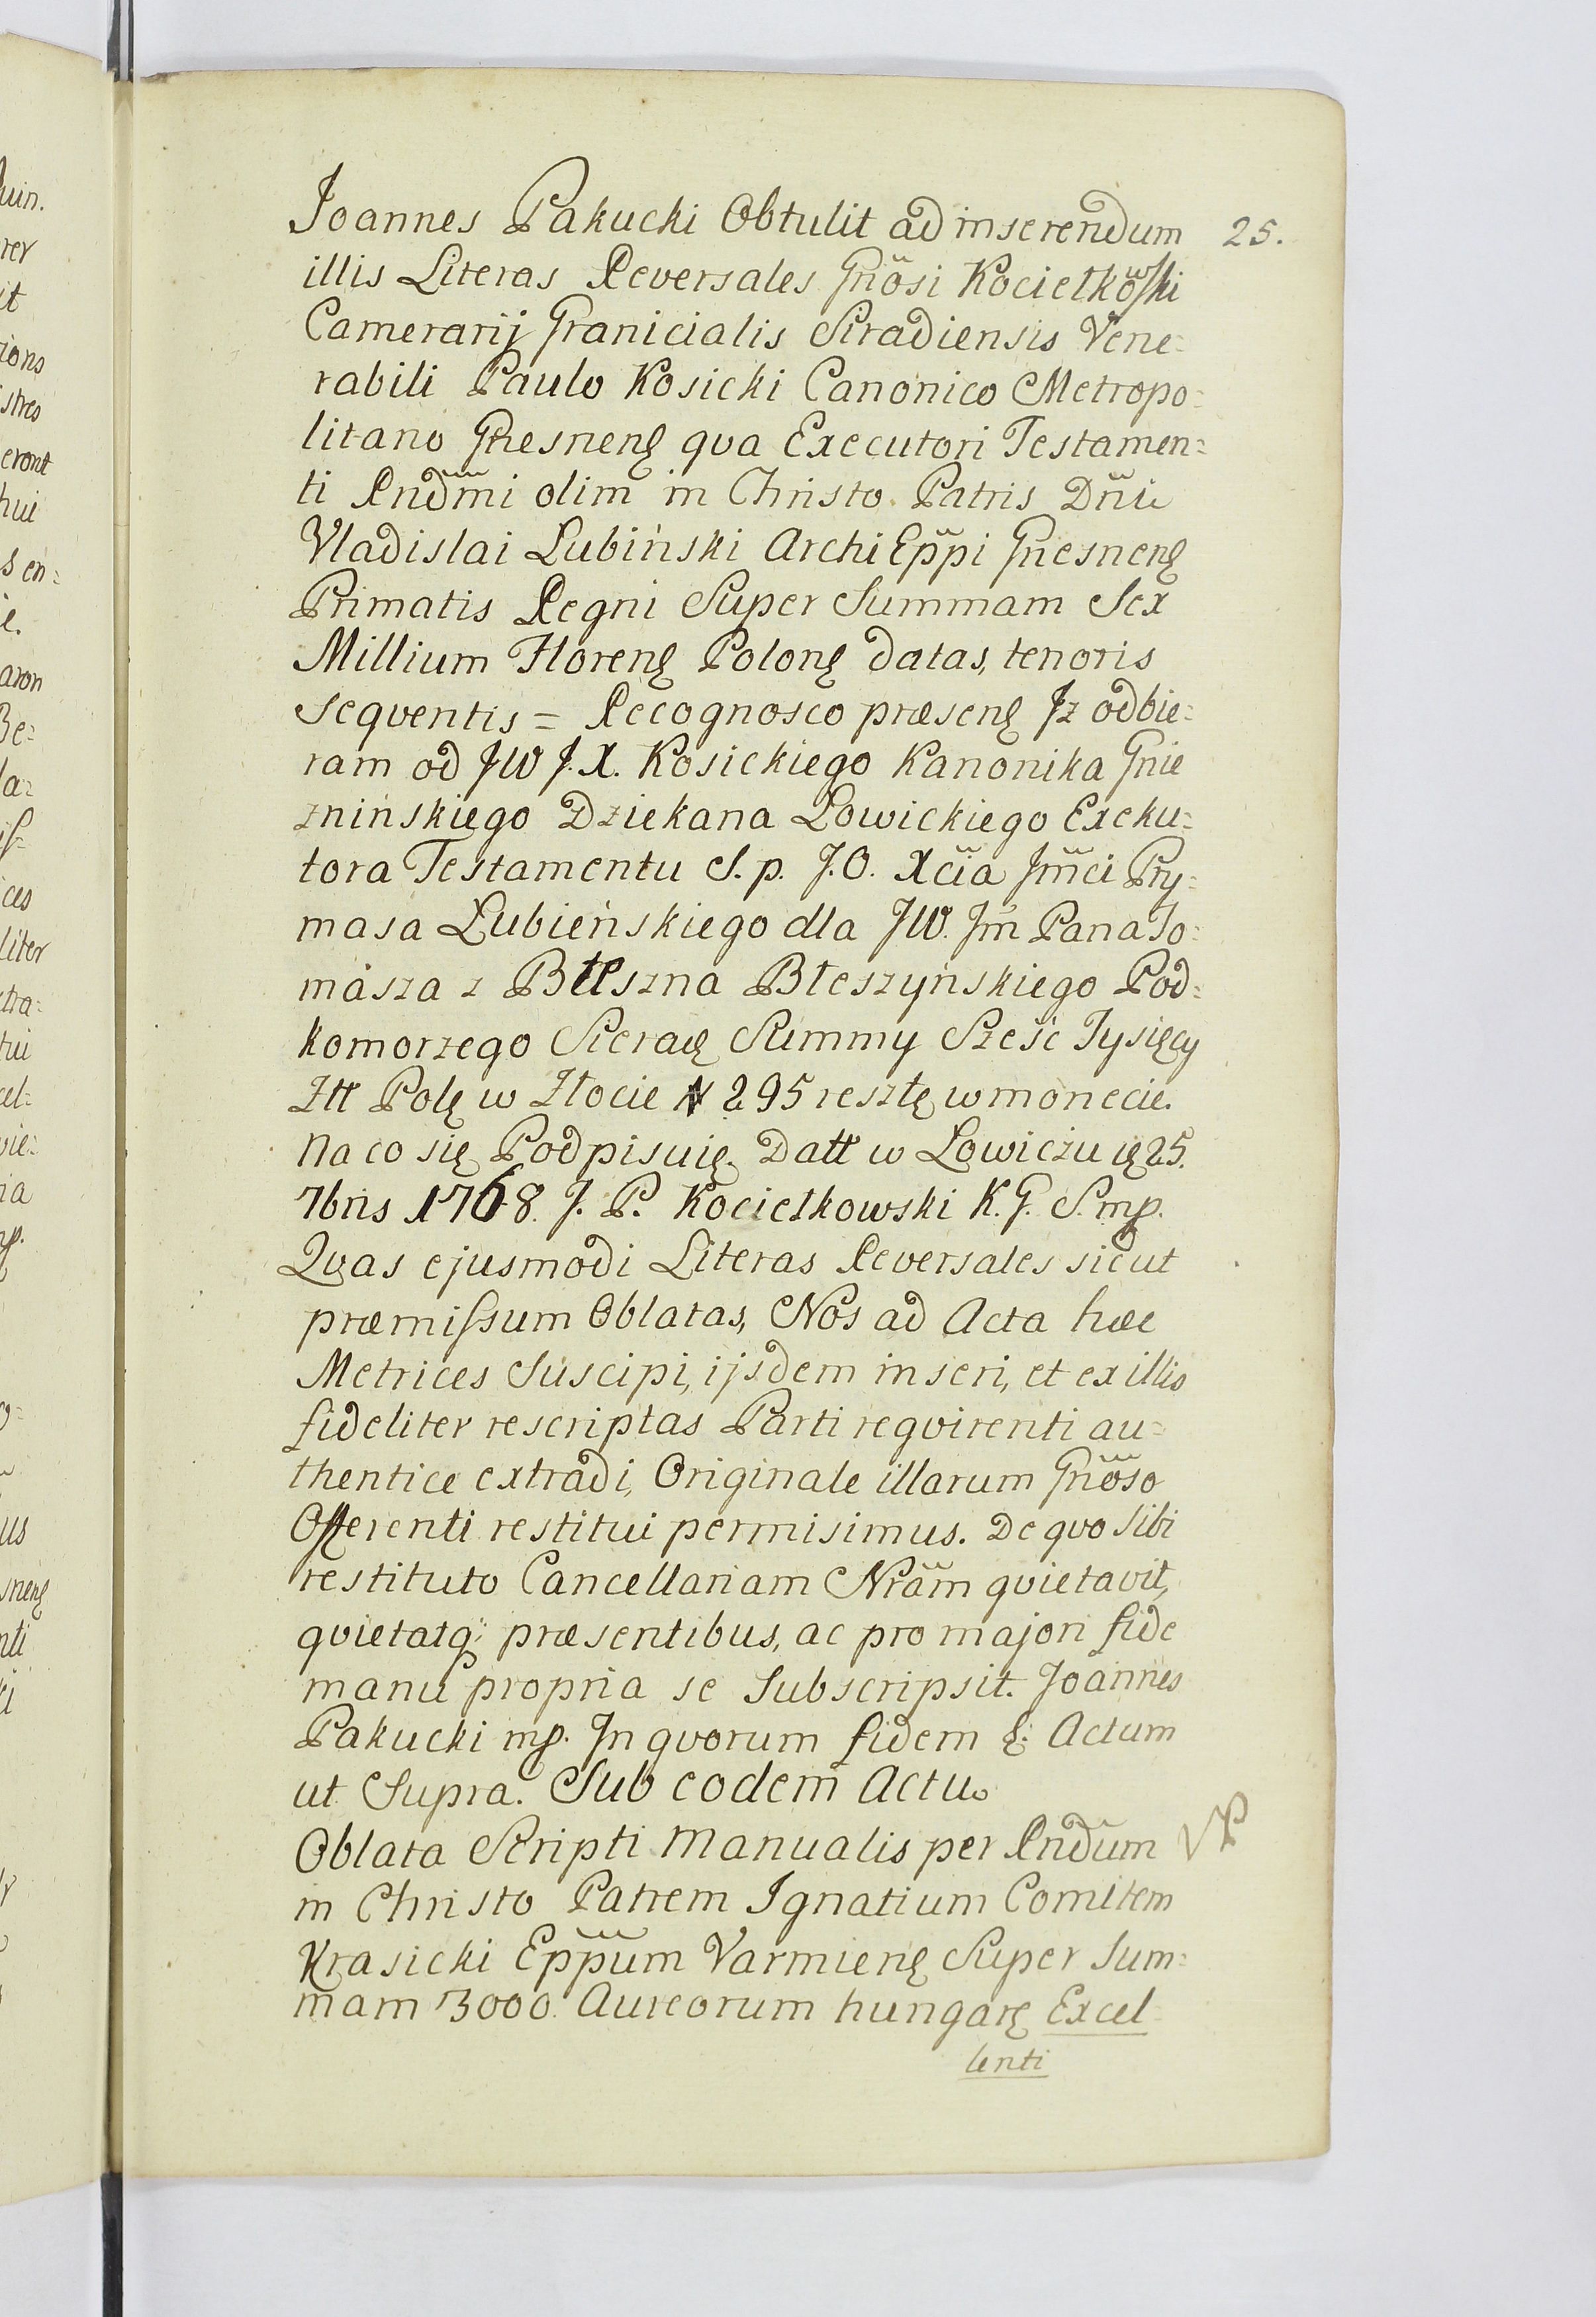 Joannes Pakucki Obtulit ad inserendum 25.
illis Literas Reversales Gn̈osi Kociełkowski
Camerarij Granicialis Siradiensis Vene=
rabili Paulo Kosicki Canonico Metropo=
litano Gnesnenę qva Executori Testamen=
ti Rnd̃mi olim in Christo Patris Dñi
Vladislai Lubiński ArchiEp̃pi Gnesnenę
Primatis Regni Super Summam Sex
Millium Florenę Polonę datas, tenoris
Seqventis = Recognosco præsenę Jz odbie=
ram od JW J.X. Kosickiego Kanonika Gnie
znińskiego Dziekana Łowickiego Exeku=
tora Testamentu S. p. J.O. Xcia Jm̃ci Pry=
masa Łubieńskiego dla JW. Jm̃ Pana To=
masza z Błeszna Błeszyńskiego Pod=
komorzego Sieradę Summy Sześć Tysięcy
Złł Polę w Złocie N 295 resztę w monecie.
Na co się Podpisuię. Datt w Łowiczu ię 25.
7bris 1768. J. P. Kociełkowski K. G. S. mp.
Qvas ejusmodi Literas Reversales sicut
præmissum Oblatas, Nos ad Acta hæc
Metrices Suscipi, ijsdem inseri, et ex illis
fideliter rescriptas Parti reqvirenti au=
thentice extradi, Originale illarum Gñoso
Offerenti restitui permisimus. De qvo Sibi
restituto Cancellariam Nr̃am qvietavit,
qvietatq; præsentibus, ac pro majori fide
manu propria se Subscripsit. Joannes
Pakucki mp. Jn qvorum fidem &: Actum
ut Supra. Sub eodem Actu.
Oblata Scripti Manualis per Rndũm
in Christo Patrem Ignatium Comitem
Krasicki Ep̃pum Varmienę Super Sum=
mam 3000. Aureorum hungarę Excel
lenti